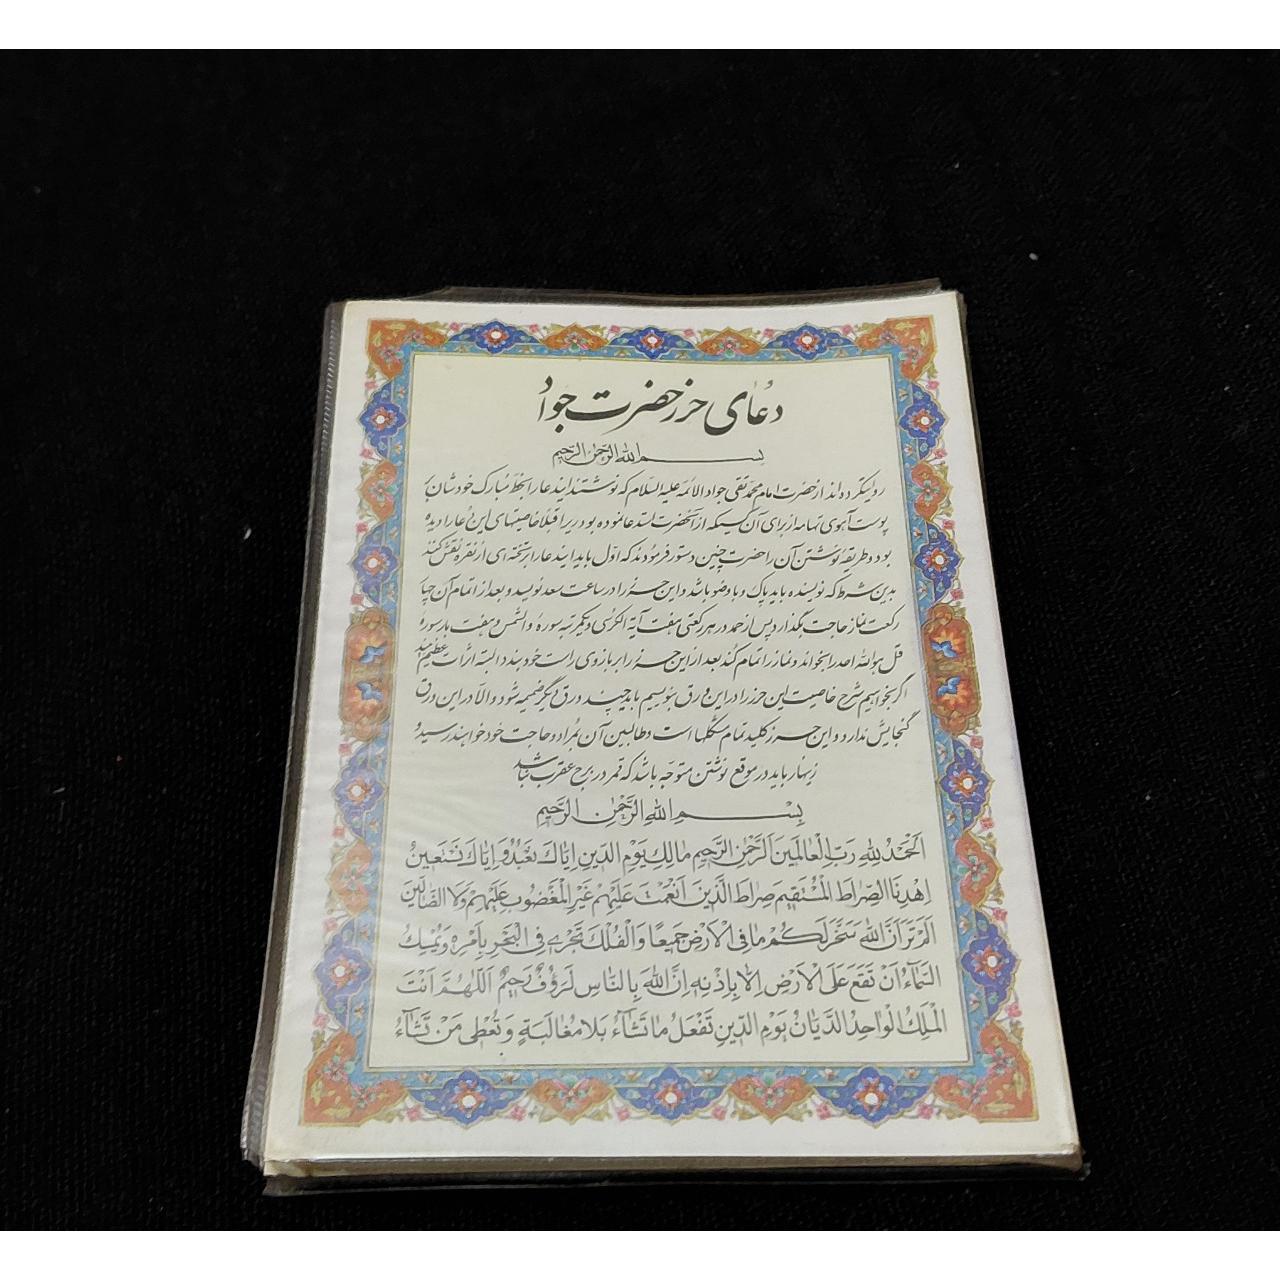 دعای حرز حضرت جواد
بسم الله الرحمن الرحیم
روایت کرده‌اند از حضرت امام محمد تقی جواد الائمه علیه السلام که نوشتند این دعا را بخط مبارک خودشان به
پوست آهوی تهامه از برای آن کسیکه از آنحضرت استدعا نموده بود زیرا قبلا خاصیتهای این دعا را دیده
بود و طریقه نوشتن آن را حضرت چنین دستور فرمودند که اول باید این دعا را بر تخته‌ای از نقره نقش کنند
بدین شرط که نویسنده باید پاک و با وضو باشد و این حرز را در ساعت سعد نویسد و بعد از اتمام آن چهار
رکعت نماز حاجت بگذارد پس از حمد در هر رکعتی هفت آیة الکرسی و یکمرتبه سوره والشمس و هفت بار سوره
قل هو الله احد را بخواند و نماز را تمام کند بعد از این حرز را بر بازوی راست خود بندد البته اثرات عظیم بیند
اگر بخواهیم شرح خاصیت این حرز را در این ورق بنویسیم باید چند ورق دیگر ضمیمه شود والا در این ورق
گنجایش ندارد و این حرز کلید تمام مشگلها است و طالبین آن بمراد و حاجت خود خواهند رسید و
زینهار باید در موقع نوشتن متوجه باشد که قمر در برج عقرب نباشد
بِسْمِ اللهِ الرَّحْمٰنِ الرَّحِیمِ
اَلْحَمْدُ لِلّٰهِ رَبِّ الْعالَمینَ اَلرَّحْمٰنِ الرَّحیمِ مالِكِ یَوْمِ الدّینِ اِیّاكَ نَعْبُدُ وَ اِیّاكَ نَسْتَعینُ
اِهْدِنَا الصِّراطَ الْمُسْتَقیمَ صِراطَ الَّذینَ اَنْعَمْتَ عَلَیْهِمْ غَیْرِ الْمَغْضُوبِ عَلَیْهِمْ وَلَا الضّالّینَ
اَلَمْ تَرَ اَنَّ اللهَ سَخَّرَ لَكُمْ ما فِی الْاَرْضِ جَمیعًا وَالْفُلْكَ تَجْری فِی الْبَحْرِ بِاَمْرِهِ وَ یُمْسِكُ
السَّمآءَ اَنْ تَقَعَ عَلَی الْاَرْضِ اِلّا بِاِذْنِهِ اِنَّ اللهَ بِالنّاسِ لَرَؤُفٌ رَحیمٌ اَللّٰهُمَّ اَنْتَ
الْمَلِكُ الْواحِدُ الدَّیّانُ یَوْمِ الدّینِ تَفْعَلُ ما تَشآءُ بِلا مُغالَبَةٍ وَ تُعْطی مَنْ تَشآءُ